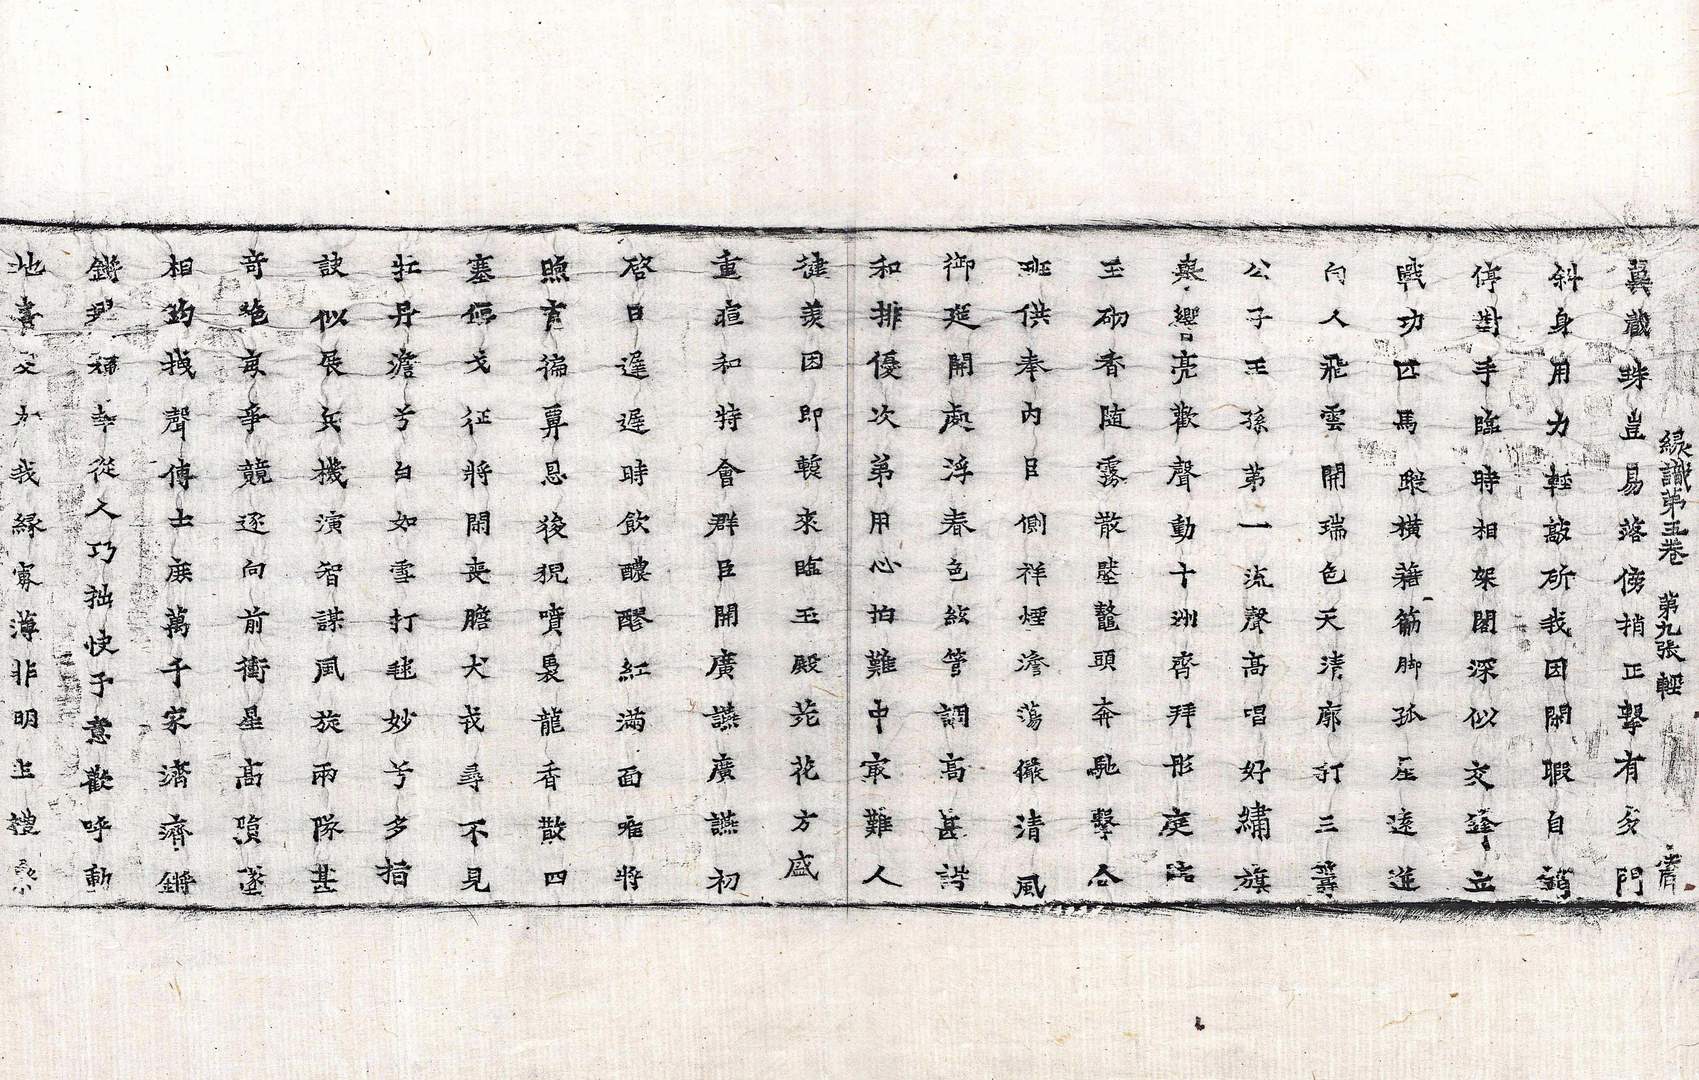 緣識第五卷 第九張 輕
翼藏珠豈易落傍梢正擊有多門
斜身用力輕敲斫我因閑暇自
停對手臨時相架閣深似交鋒立
戰功匹馬縱橫藉筋脚孤座遠近
向人飛雲開瑞色天清廓打三籌
公子王孫第一流聲高唱好繡旗
裊響亮歡聲動十洲齊拜形庭
玉砌香随霧散墜鼇頭奔馳擊合
班供奉內臣側祥煙澹蕩儼清風
御莚開處浮春色絃管調高甚諧
和排優次第用心怕難中㝡難人
揵羨因即輳來臨玉殿花方盛
重暄和特會群臣開廣讌廣讌初
啓日遲遲時飲醲醪紅滿面唯將
煦育徧覃恩後猊噴裊龍香散四
塞偃戈征將閑喪膽犬戎尋不見
牡丹澹兮白如雪打毬妙兮多指
訣似展兵機演智謀風旋兩隊甚
奇絶爭競逐向前衝星高隕墜
相鈞拽聲傳士庶萬千家濟濟鏘
鏘從人巧拙快予意歡呼動
地喜交加我緣寡薄非明主禮